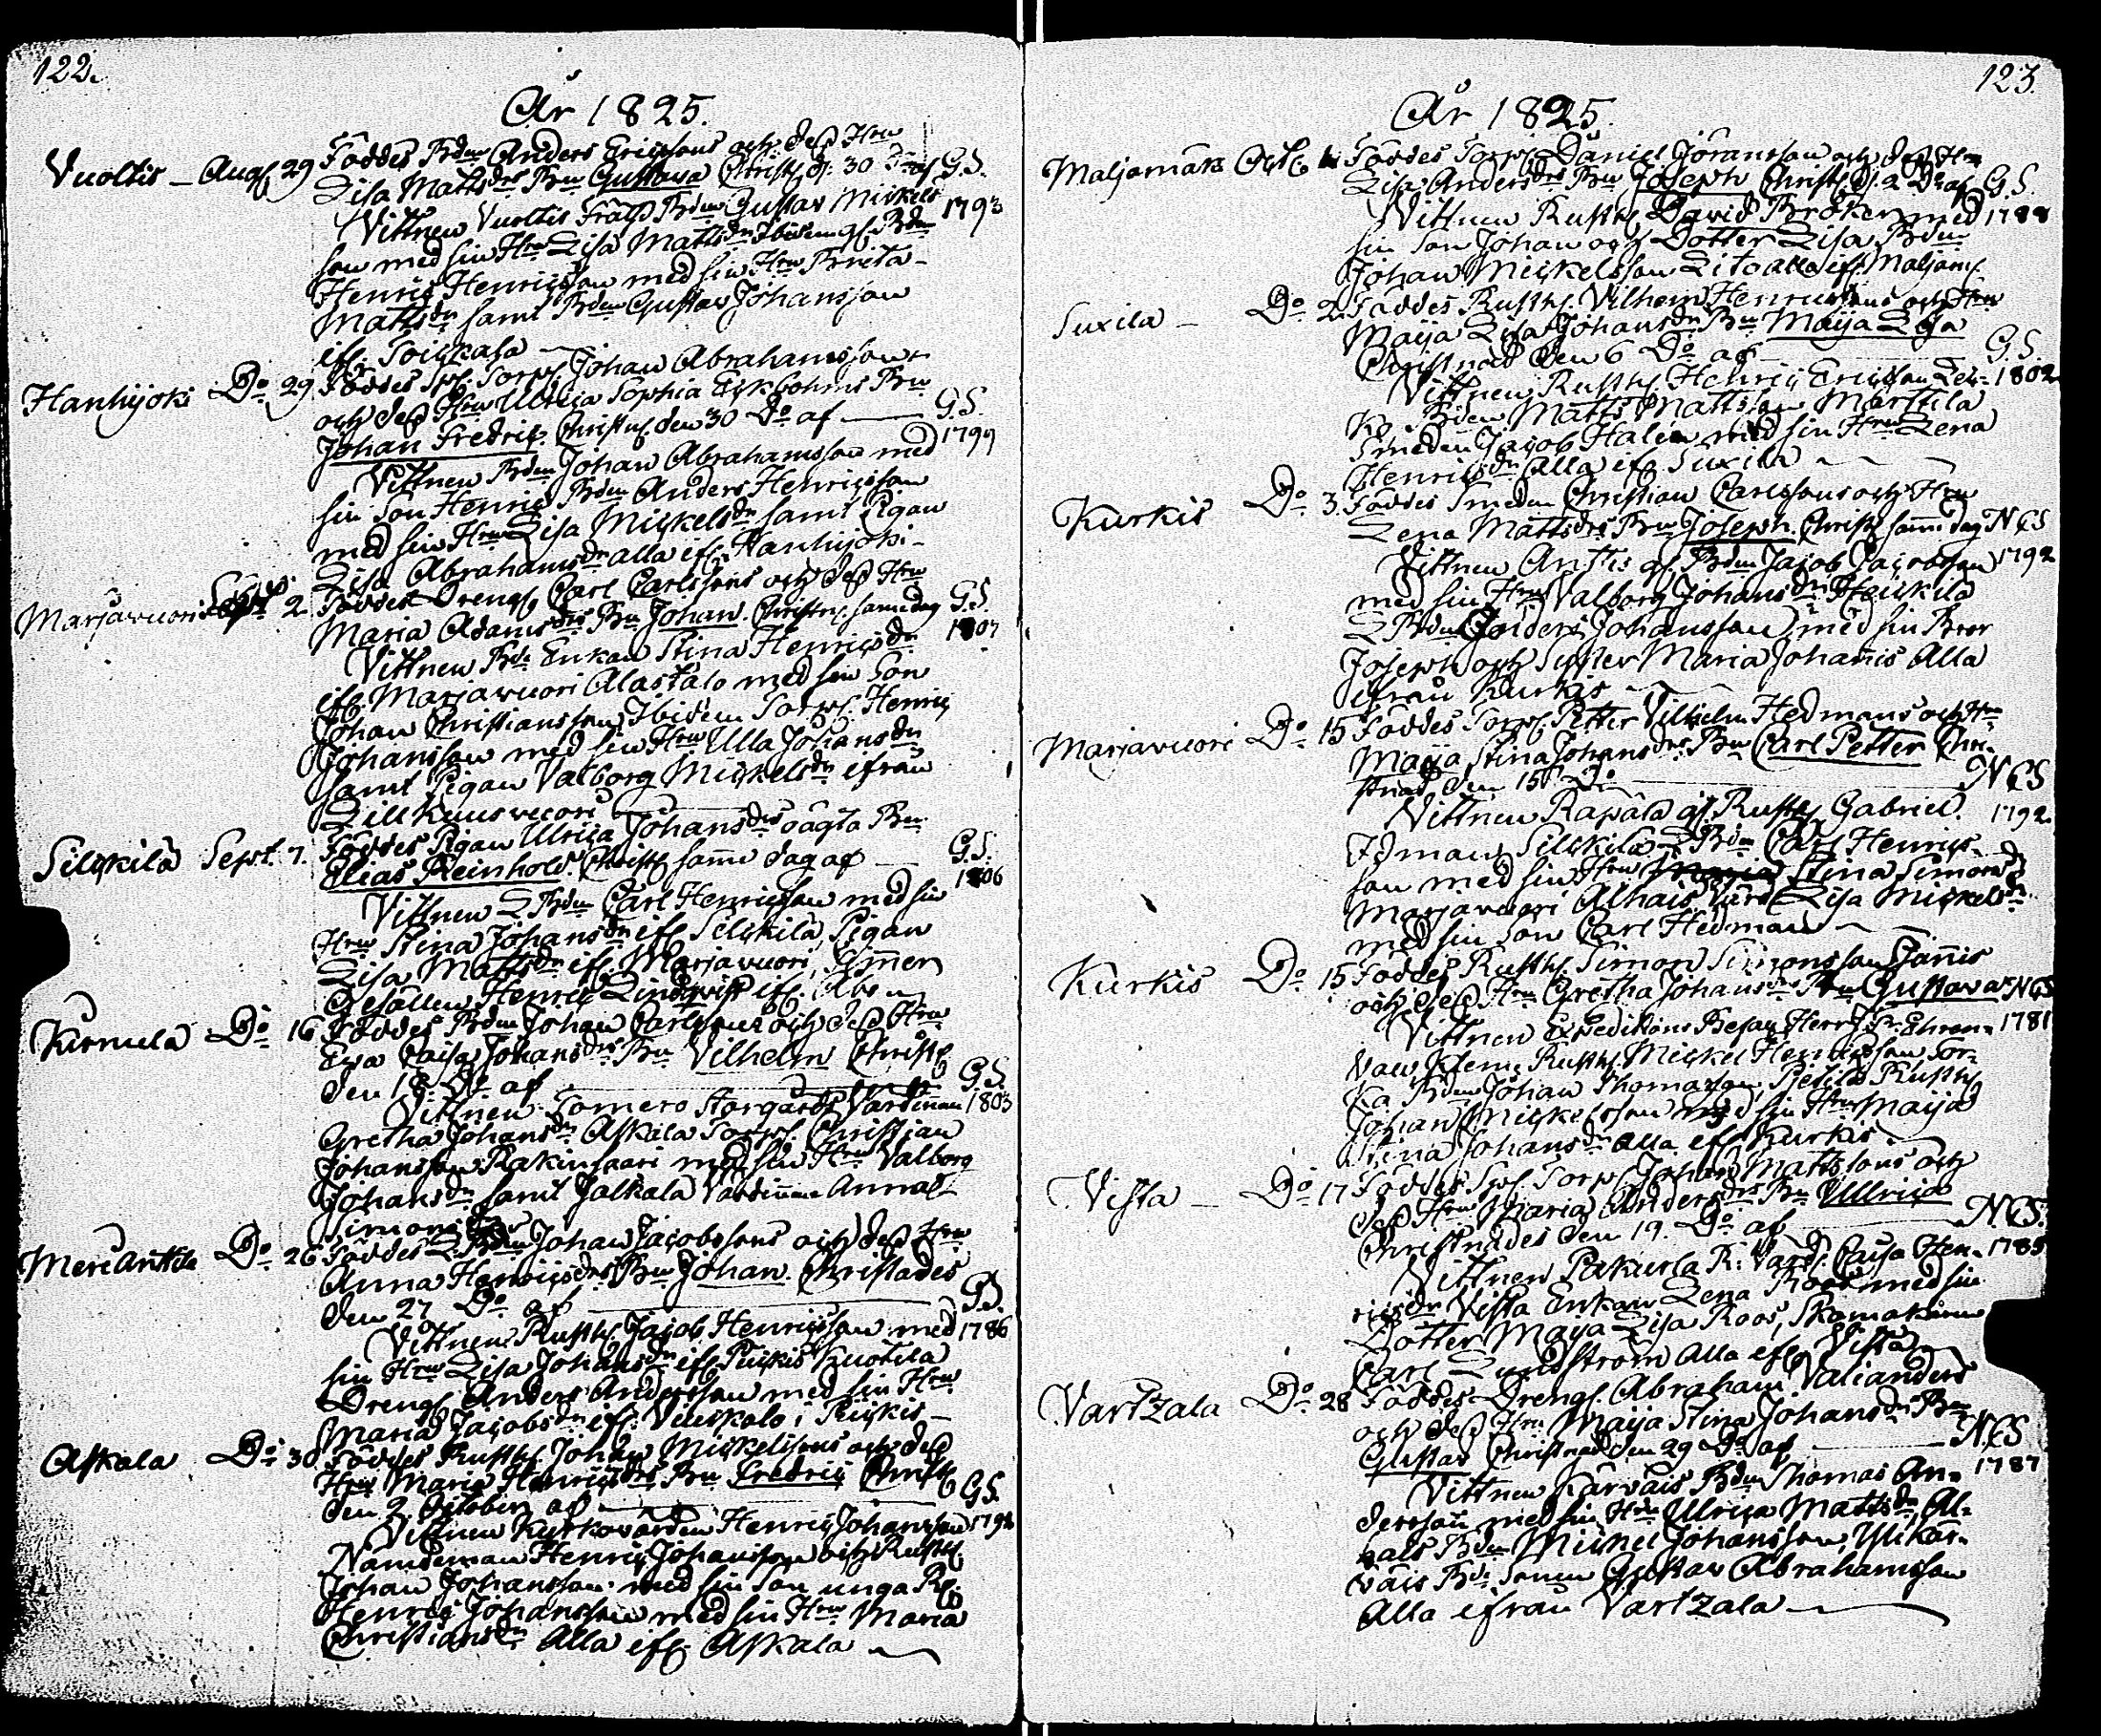 122.
År 1825.
Vuoltis _ Aug: 29 Föddes Bdn Anders Ericssons och dess Hru
Lisa Mattsdrs Bn Gustava Christ: d. 30 af G.S.
Vittnen Vuoltis Bdn Gustav Mickels 1793
son med sin Hru Lisa Mattsdn Ibidem Bdn
Henric Henricsson med sin Hru Brita
Mattsdn samt Bdn Gustav Johansson
ifr: Soickala
Hanhijoki Do 29 Föddes Johan Abrahamsson
och dess Hru Ulrica Sophia Ekbohms Bn
Johan Fredric. Christn: den 30 Do af G.S.
Vittnen Bdn Johan Abrahamsson med 1799
sin Son Henric Bdn Anders Henricsson
med sin Hru Lisa Mickelsdn samt Pigan
Lisa Abrahamsdn alla ifr: Hanhijoki
Marjavuori Sept 2. Föddes Dreng: Carl Carlssons och dess Hru
Maria Adamsdrs Bn Johan. Christn: samma dag G.S.
Vittnen Enkan Stina Henricsdn 1807
ifr: Marjavuori Alastalo med sin Son
Johan Christiansson, Ibidem Torp: Henric
Johansson med sin Hru Ulla Johansdn
samt Pigan Valborg Mickelsdn ifrån
Lillkuusvuori
Silckilä Sept. 7. Föddes Pigan Ulrica Johansdrs oägta Bn
Elias Reinhold. Christ: samma dag af G.S.
1806
Vittnen Bdn Carl Henricsson med sin
Hru Stina Johansdn ifr: Silckilä, Pigan
Lisa Mattsdn ifr: Marjavuori, Timmer
Gesällen Henric Lindqvist ifr: Åbo
Kurnula Do 16 Föddes Bdn Johan Carlssons och dess Hru
Eva Caisa Johansdrs Bn Vilhelm Christ:
den 18 Do af G.S.
Vittnen Somero Storgårds Värdinnan 1803
Gretha Johansdn Askala Torp: Christian
Johansson Rakinsaari med sin Hru Valborg
Johansdn samt Jalkala Värdinna Anna
Simons
Meri Anttila Do 26 Föddes Bdn Johan Jacobssons och dess Hru
Anna Henricsdrs Bn Johan. Christnades
den 27 Do af G.S.
Vittnen Rusth: Jacob Henricsson med 1786
sin Hru Lisa Johansdn ifr: Kuotila
Dreng: Anders Andersson med sin Hru
Maria Jacobsdn ifr: i
Askala Do 30 Föddes Rusth: Johan Mickelssons och dess
Hru Maria Henricsdrs Bn Fredric Christ:
den 2 October af G.S.
Vittnen Kyrkovärden Henric Johansson
Nämdeman Henric Johansson och Rusth:
Johan Johansson med sin Son unga
Henric Johansson med sin Hru Maria
Christiansdn Alla ifr: Askala
123.
År 1825.
Maljamäki Oct: 1 Föddes Torp: Daniel Jöransson och dess Hru
Lisa Andersdrs Bn Joseph Christ: d. 2 Do af G.S.
Vittnen Rusth: David Bröcker med 1788
sin Son Johan och Dotter Lisa, Bdn
Johan Mickelsson alla ifr: Maljam:
Suxila _ Do 2 Föddes Rusth: Vilhem Henricssons och Hru
Maija Lisa Johansdn Bn Maija Lisa
Christnad den 6 Do af G.S.
Vittnen Rusth: Henric Ericsson 1802
Bdn Matts Mattsson Marttila
Smeden Jacob Halen med sin Hru Lena
Henricsdn Alla ifr: Suxila
Kurkis Do 3. Föddes Smeden Christian Carlssons och Hru
Lena Mattsdrs Bn Joseph. Christ: samma dag NCS
Vittnen Anttis Bdn Jacob Jacobsson 1792
med sin Hru Valborg Johansdn Heickilä
Bdn Anders Johansson, med sin Bror
Joseph och Syster Maria Johannis Alla
ifrån Kurkis
Marjavuori Do 15 Föddes Torp: Petter Vilhelm Hedmans och Hru
Maija Stina Johansdrs Bn Carl Petter Chri-
stnad den 15 Do NCS
Vittnen Rapala Rusth: Gabriel 1792.
Idman, Silckilä Bdn Carl Henrics-
son med sin Hru Stina Simons
Marjavuori Alhais Lisa Mickelsdn
med sin Son Carl Hedman
Kurkis Do 15 Föddes Rusth: Simon Simonsson Jannis
och dess Hru Gretha Johansdrs Bn Gustava NCS
Vittnen Expeditions Herr 1781
Rusth: Mickel Henricsson
Bdn Johan Thomasson, Rusth:
Johan Mickelsson med sin Hru Maija
Stina Johansdn alla ifr: Kurkis
Vista _ Do 17 Föddes Torp: Johan Mattssons och
dess Hru Maria Andersdrs Bn Ullrica
Christnades den 19. Do af NCS.
Vittnen Pakurla Caisa Hen- 1785
ricsdn Vista Enkan Lena Roos med sin
Dotter Maija Lisa Roos, Skomakaren
Carl Sundström Alla ifr: Vista
Vartzala Do 28 Föddes Dreng: Abraham Valianders
och dess Hru Maija Stina Johansdrs Bn
Gustav Christnad den 29 Do af NCS
Vittnen Karvais Bdn Thomas An- 1787
dersson med sin Hru Ulrica Mattsdn
Bdn Michel Johansson, Ylikar-
vais Sonen Gustav Abrahamsson
Alla ifrån Vartzala